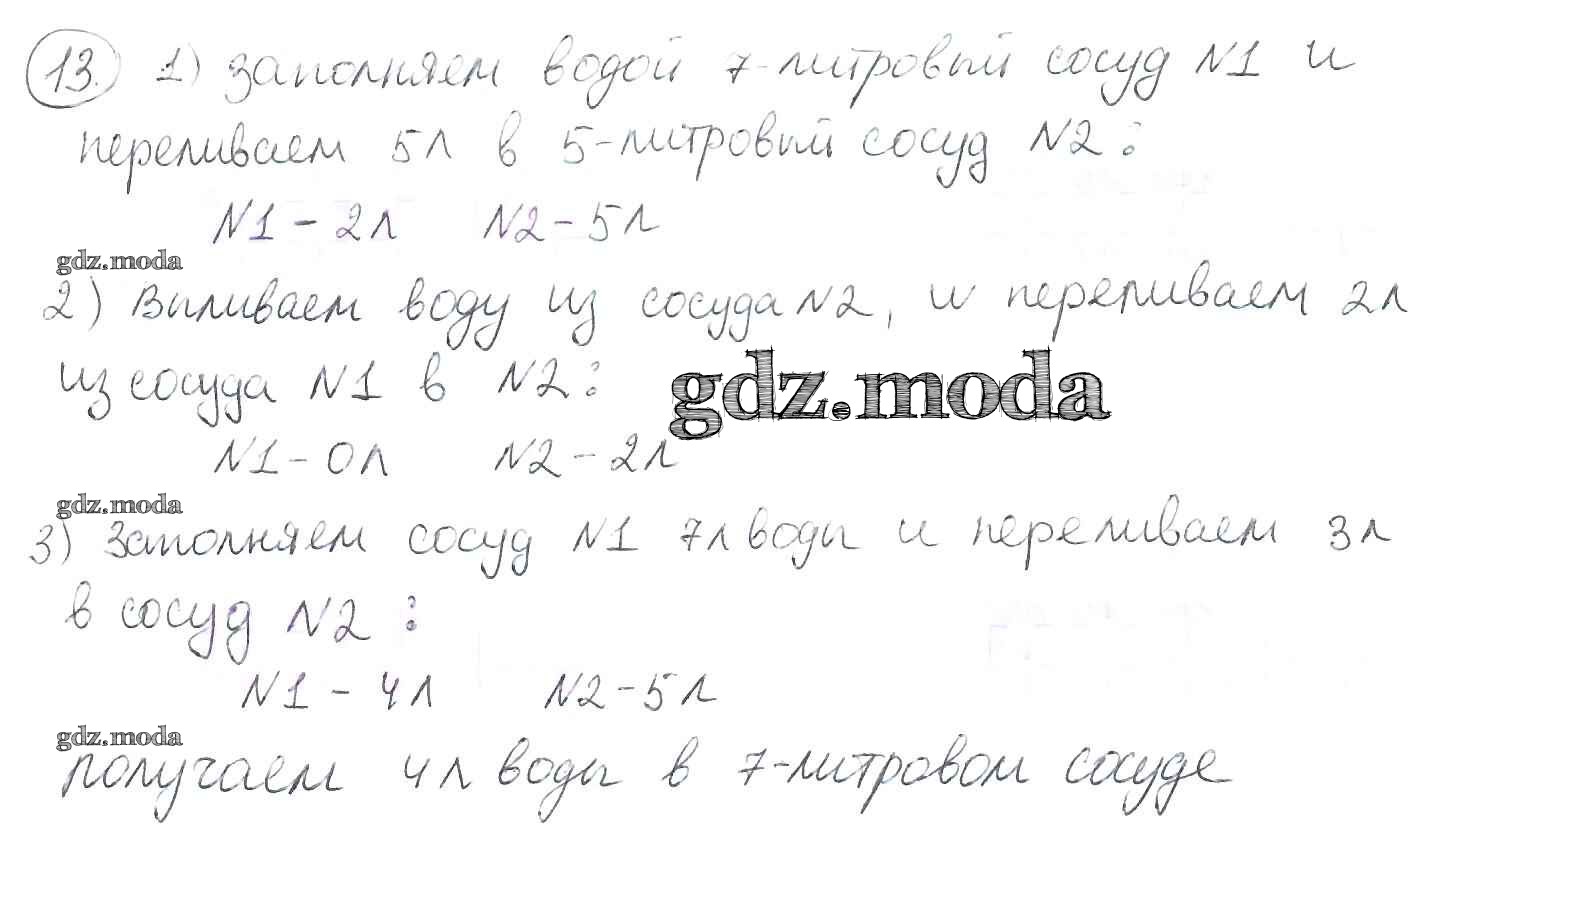 13. 1) заполняем водой 7-литровый сосуд N1 и
переливаем 5л в 5-литровый сосуд N2:
N1 - 2л N2 - 5л
gdz.moda
2) Выливаем воду из сосуда N2, и переливаем 2л
из сосуда N1 в N2:
gdz.moda
N1 - 0л N2 - 2л
gdz.moda
3) Заполняем сосуд N1 7л воды и переливаем 3л
в сосуд N2:
N1 - 4л N2 - 5л
gdz.moda
получаем 4л воды в 7-литровом сосуде